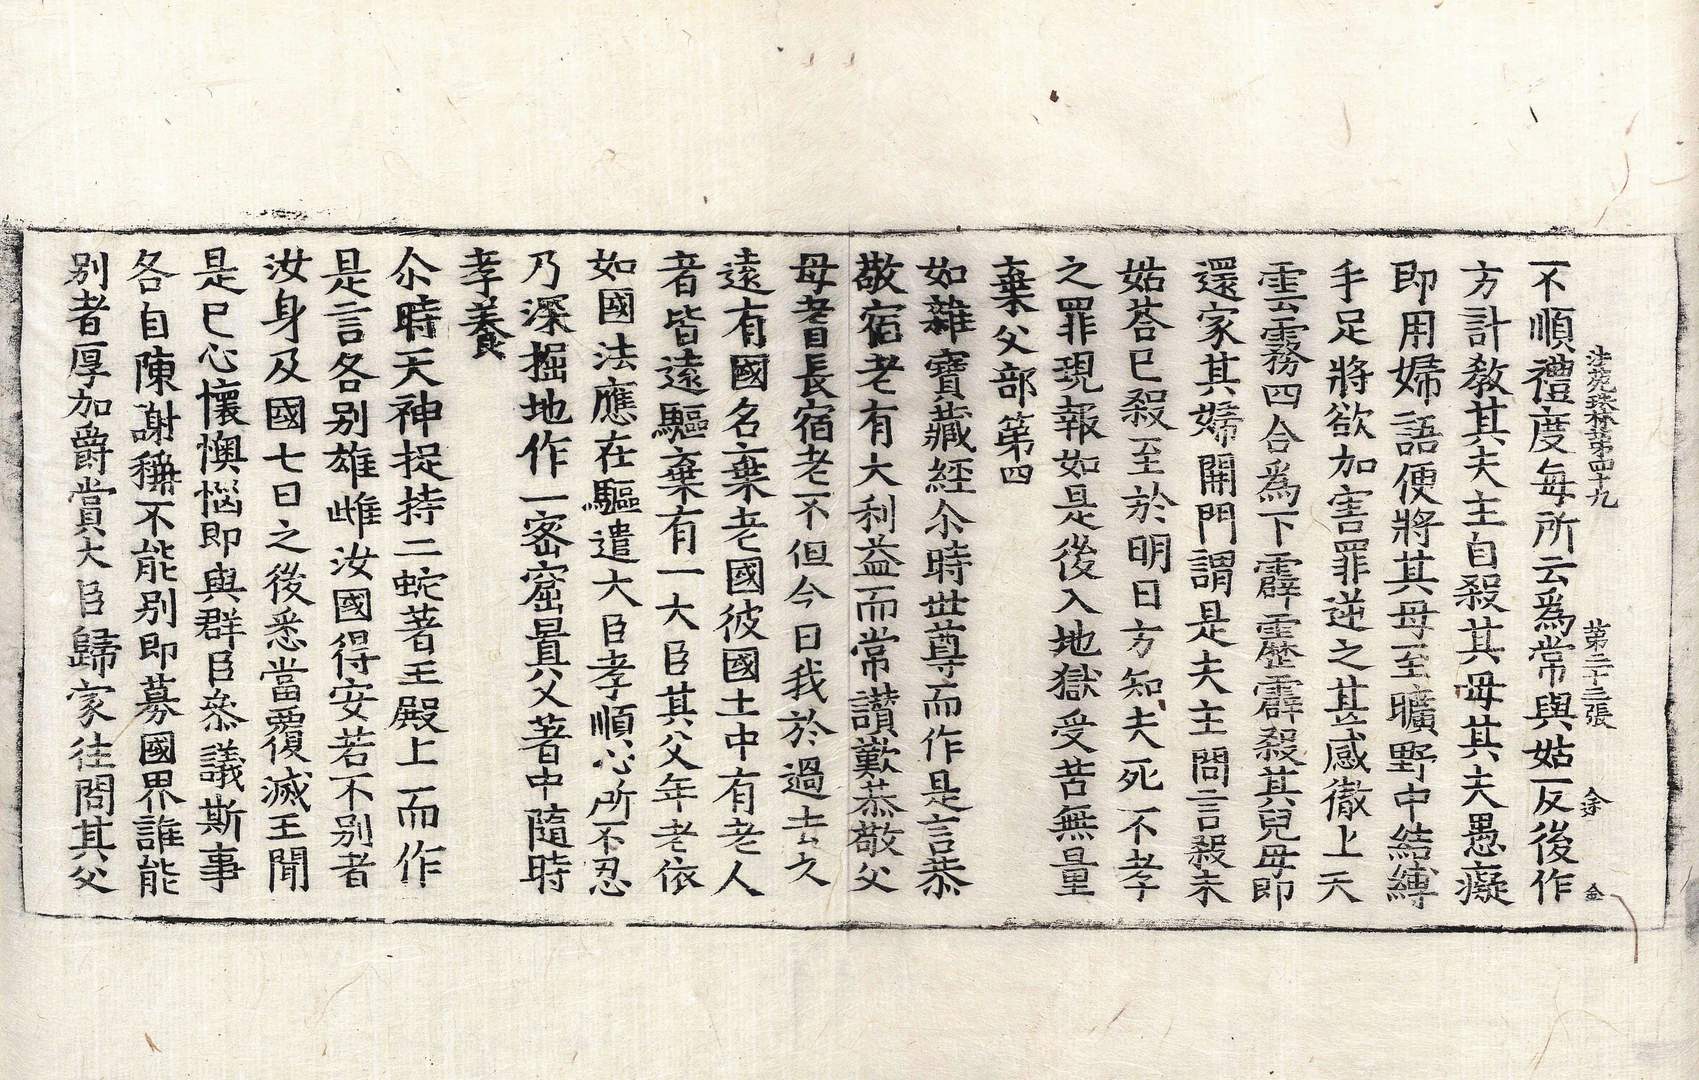 法苑珠林第四十九　第二十三張　金
不順禮度每所云爲常與姑反後作
方計教其夫主自殺其母其夫愚癡
即用婦語便將其母至曠野中結縛
手足將欲加害罪逆之甚感徹上天
雲霧四合爲下霹靂霹殺其兒母即
還家其婦開門謂是夫主問言殺未
姑荅已殺至於明日方知夫死不孝
之罪現報如是後入地獄受苦無量
棄父部第四
如雜寶藏經尒時世尊而作是言恭
敬宿老有大利益而常讃歎恭敬父
母耆長宿老不但今日我於過去久
遠有國名棄老國彼國土中有老人
者皆遠驅棄有一大臣其父年老依
如國法應在驅遣大臣孝順心所不忍
乃深掘地作一密窟置父著中隨時
孝養
尒時天神捉持二蛇著王殿上而作
是言各别雄雌汝國得安若不别者
汝身及國七日之後悉當覆滅王聞
是已心懷懊惱即與群臣叅議斯事
各自陳謝稱不能别即募國界誰能
别者厚加爵賞大臣歸家往問其父